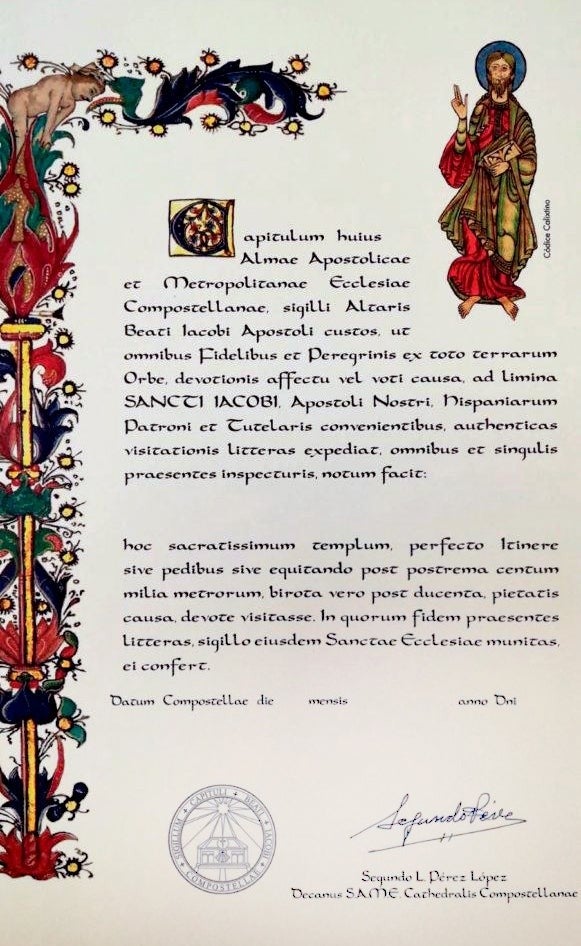 Códice Calixtino
Capitulum huius
Almae Apostolicae
et Metropolitanae Ecclesiae
Compostellanae, sigilli Altaris
Beati Iacobi Apostoli custos, ut
omnibus Fidelibus et Peregrinis ex toto terrarum
Orbe, devotionis affectu vel voti causa, ad limina
SANCTI IACOBI, Apostoli Nostri, Hispaniarum
Patroni et Tutelaris convenientibus, authenticas
visitationis litteras expediat, omnibus et singulis
praesentes inspecturis, notum facit:
hoc sacratissimum templum, perfecto Itinere
sive pedibus sive equitando post postrema centum
milia metrorum, birota vero post ducenta, pietatis
causa, devote visitasse. In quorum fidem praesentes
litteras, sigillo eiusdem Sanctae Ecclesiae munitas,
ei confert.
Datum Compostellae die mensis anno Dni
SIGILLUM CAPITULI BEATI IACOBI
COMPOSTELLAE
Segundo Pérez
Segundo L. Pérez López
Decanus S.A.M.E. Cathedralis Compostellanae